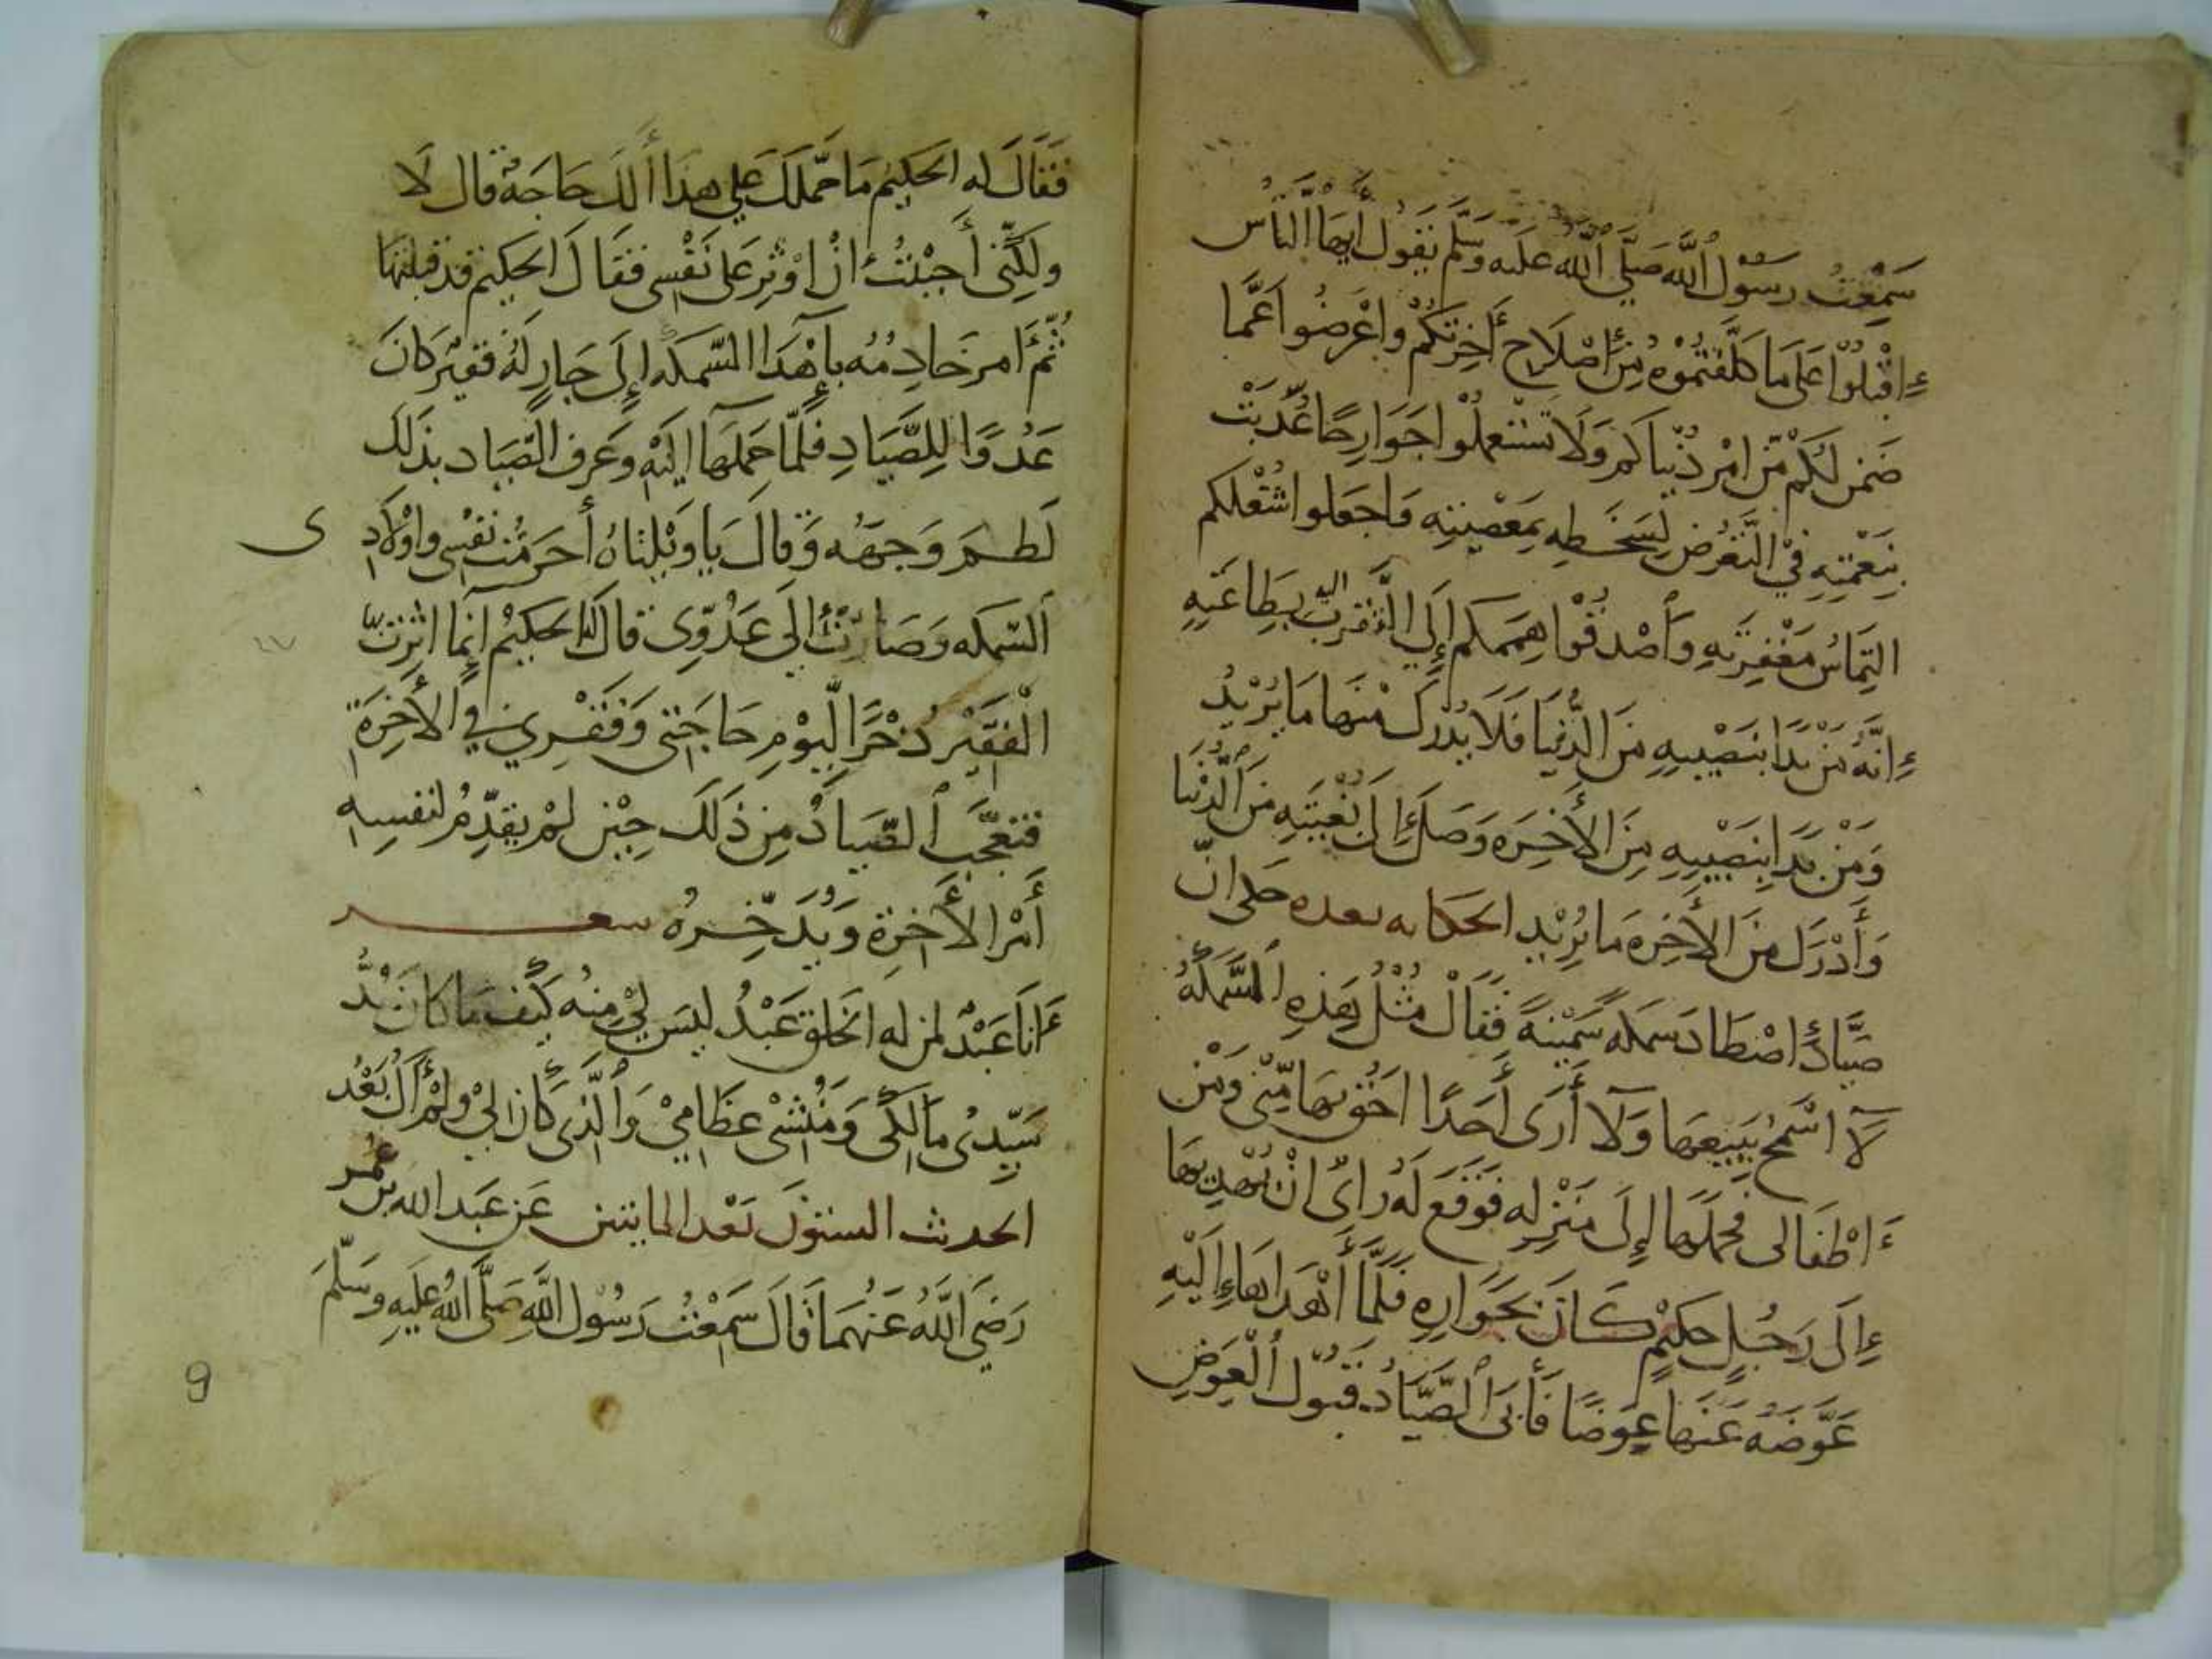 سَمِعْتُ رَسُوْلَ اللّٰه صَلَّى اللّٰه عليه وَسَلَّم يَقُولُ أَيُّهَا النَّاسُ
اِقْبِلُوْا عَلَى مَا كُلِّفْتُمُوْهُ مِنْ اِصْلَاحِ أَخِرَتِكُمْ وَاعْرَضُوا عَمَّا
ضَمِنَ لَكُمْ مِّنْ اَمْرِ دُنْيَاكُم وَلَا تَسْتَعمِلُوا جَوَارِحًا غُذِّيَتْ
بِنِعْمَتِهِ فِيْ التَّعَرُّضِ لِسَخَطِه بِمَعْصِيَتِهِ وَاجعَلوا شُغْلَكم
التِمَاسُ مَغْفِرَتِهِ وَأَصْدِقُوْا هِمَمَكم إِلَى التَّقَرُّبِ اليه بِطَاعَتِهِ
اِنَّهُ مَنْ بَدَا بِنَصِيْبِهِ مِنَ الدُّنْيَا فَلَا يُدْرِكُ مْنَها مَا يُرْيْدُ
وَمَنْ بَدَا بِنَصِيْبِهِ مِنَ الأَخِرَه وَصَلَ إِلَى نُغْيَتِهِ مِنَ الدُّنْيَا
وَأَدْرَكَ مِنَ الأَخِرَه مَا يُرِيْد الحكايه بعده حكى انّ
صَيَّادًا اصْطَادَ سَمَكه سَمِيْنةً فَقَالْ مْثْلُ هَذِهِ السَّمَكَهُ
لَا اسْمَحُ بِبَيعِهَا وَلَا أَرَى أَحَدًا احَقُّ بهَا مِّنْي وَمْن
اطْفَالى فحمَلَها إِلَى مَنْزِلِه فَوَقَعَ لَهُ رَايٌ انْ يُهْدِيها
إِلَى رَجُلٍ حكيْمٍ كَانَ بِجَوَارِهِ فَلَمَّا أَهْدَاهَا إِلَيْهِ
عَوَّضَهُ عَنهَا عِوَضًا فَأَبَى الصَّيَّادُ قَبُوْلَ الْعِوَضِ
فَقَالَ له الحَكيْم مَا حَمَلَكَ عَلي هذَا أَلَكَ حَاجَةٌ قال لَا
ولَكِنِّى أَحْبَبْتُ انْ اُوْثِرَ عَلى نَفْسِى فَقَالَ الحَكيم قد قبلتهَا
ثُمَّ امر خَادِمُه بِإهْدَا السّمكه إِلَى جَارٍ لَهُ فَقِيْرٍ كَانَ
عَدُوًّا لِلصَّيَادِ فَلَمَّا حَمَلَهَا اليَهْ وَعَرف الصَّيَاد بذَلك
لَطَمَ وَجهَه وَقَالَ يَا وَيْلَتَاهُ أَحَرَمْتُ نفْسِى وَاوْلَادِى
السّمكه وَصَارَتْ إِلَى عَدُوِّى قَالَ لَهُ الحكِيْمُ اِنَّما اثرْتُ
الْفَقِيْرَ ذُخْرًا لِّيوْمِ حَاجَتِى وَفَقْرِي فِي الأَخِرَةِ
فتعجَّبَ الصّيَادُ مِن ذَلَكَ حِيْن لمْ يقدّم لنفسِهِ
أَمْرَ الأَخِرَةِ وَيُدَخِّرهُ شعر
اَنَا عَبْدٌ لمن له الخلق عَبْدُ ليسَ لِيْ مِنهُ كيْفَ مَا كانَ بُدُّ
سَيِّدِى مَالِكِى وَمُنْشِىْ عظَامِيْ وَالَّذِى كَانَ لِيْ وَلَمْ أَكُ بَعْد
الحديث الستون بعْد المايتين عَن عَبد الله بن عُمر
رَضِيَ اللّٰهُ عَنهُمَا قَالَ سَمِعْتُ رَسُوْلَ اللّٰهِ صَلَّى اللّٰهُ عَلَيهِ وسَلَّمَ
9